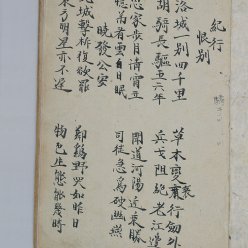 紀行
恨別
洛城一別四千里
草木變衰行劍外
胡騎長驅五六年
兵戈阻絶老江邊
思家步月清宵立
聞道河陽近乗勝
憶弟看雲白日眠
司徒急為破幽燕
曉發公安
北城擊柝復欲罷
鄰鷄野哭如昨日
東方明星亦不遲
物色生態能幾時